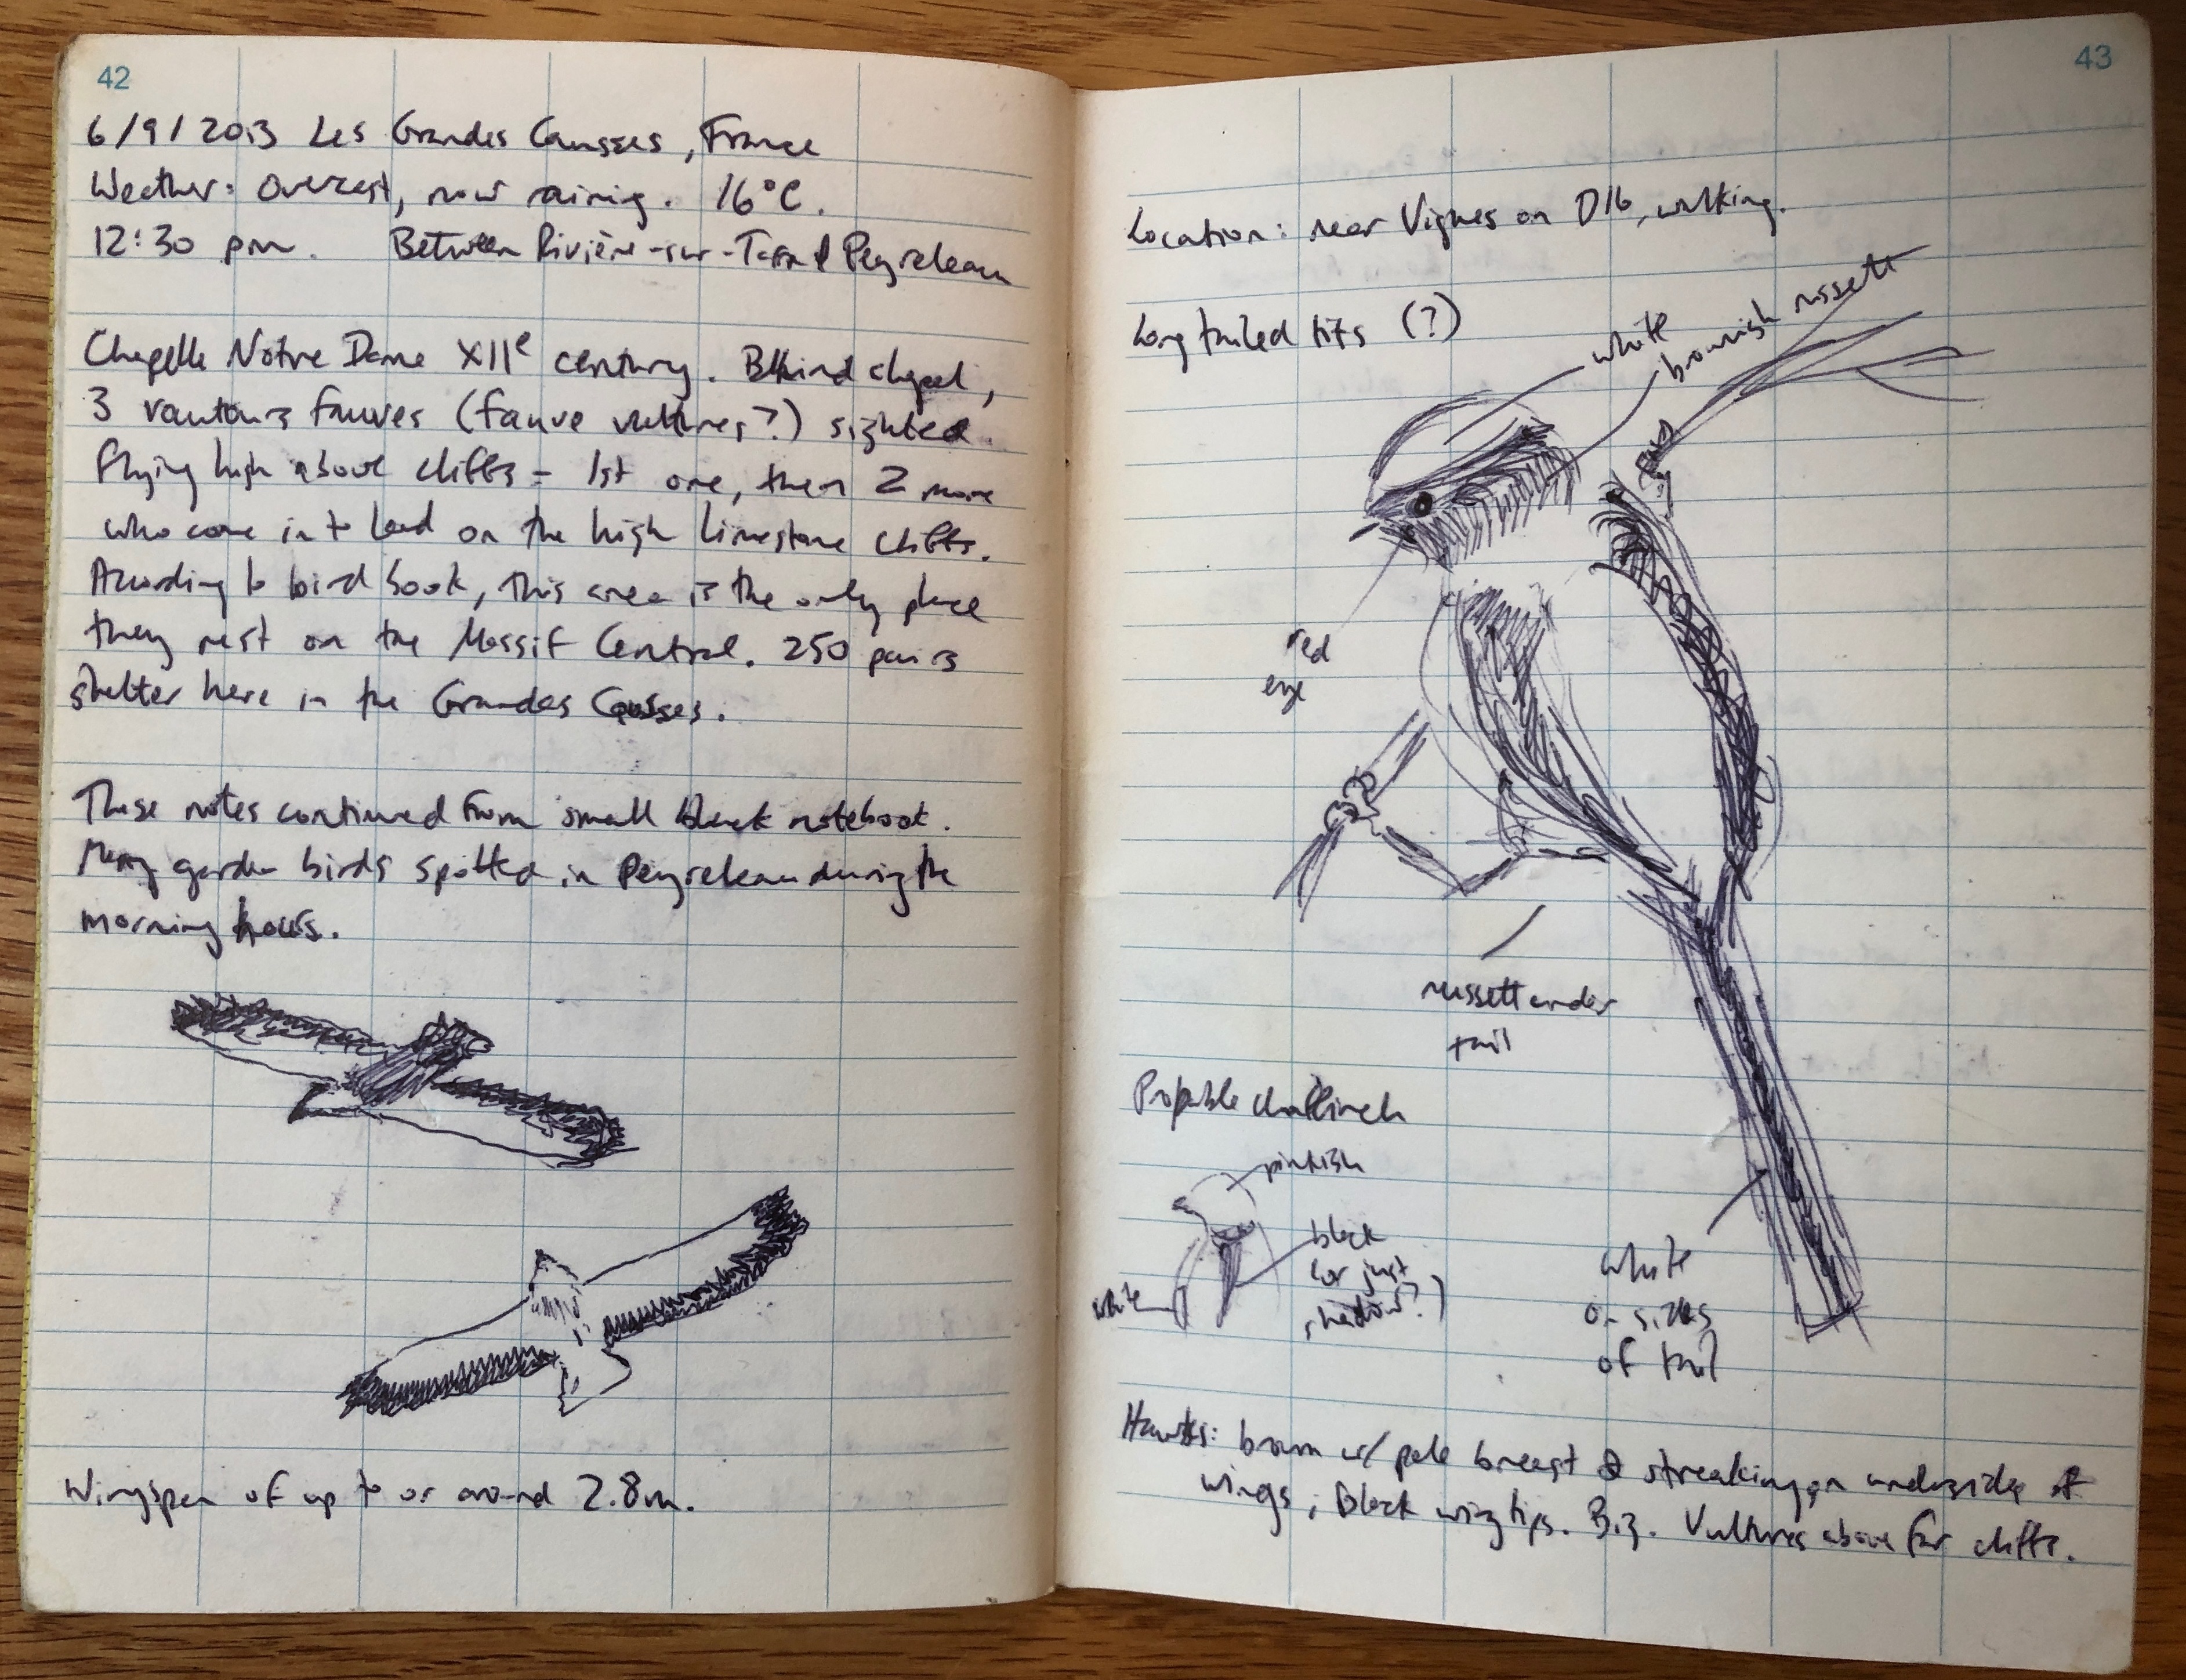 42
6/9/2013 Les Grandes Causses, France
Weather: Overcast, now raining. 16°C.
12:30 pm. Between Rivière-sur-Tarn & Peyreleau
Chapelle Notre Dame XIIe century. Behind chapel,
3 vautours fauves (fauve vultures?) sighted.
Flying high above cliffs - 1st one, then 2 more
who come in to land on the high limestone cliffs.
According to bird book, this area is the only place
they nest on the Massif Central. 250 pairs
shelter here in the Grandes Causses.
These notes continued from small black notebook.
Many garden birds spotted in Peyreleau during the
morning hours.
Wingspan of up to or around 2.8m.
43
Location: near Vignes on D16, walking.
Long tailed tits (?)
white
brownish russett
red
eye
russett under
tail
Probable chaffinch
pinkish
black
(or just
shadow?)
white
white
on sides
of tail
Hawks: brown w/ pale breast & streaking on underside of
wings, Black wing tips. Big. Vultures above far cliffs.